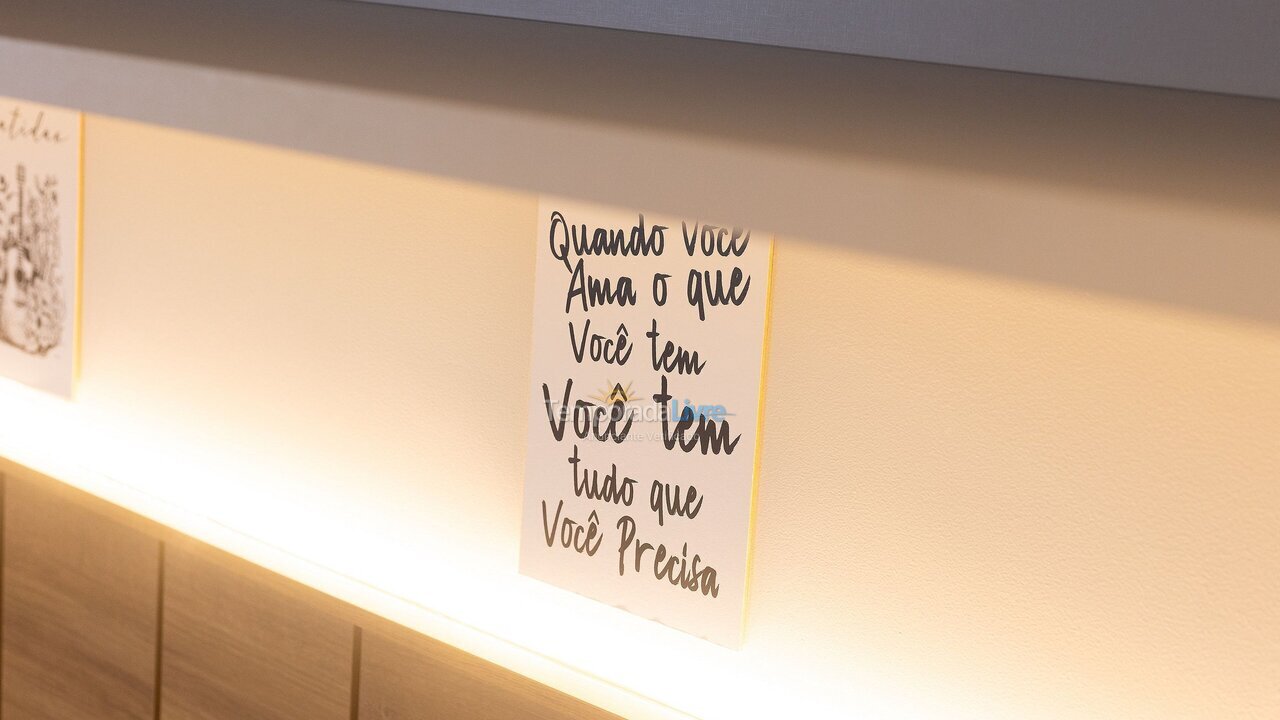 Quando Você
Ama o que
Você tem
Você tem
tudo que
Você Precisa
TemporadaLivre